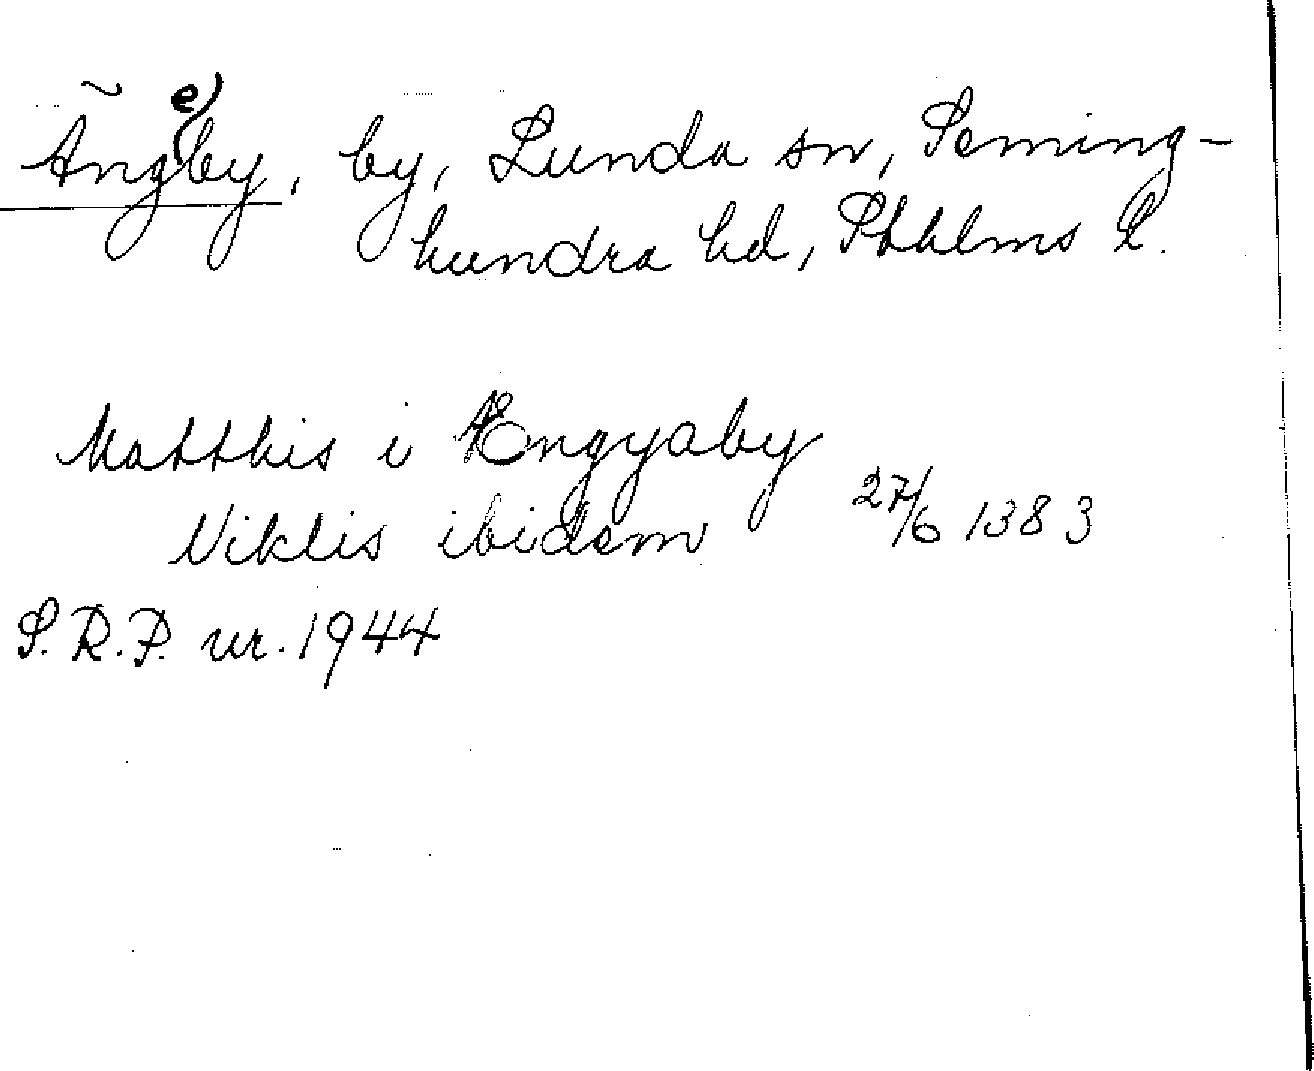 Äng(e)by, by, Lunda sn, Seming-
hundra hd, Sthlms l.
Matthis i Ængyaby
Niklis ibidem 27/6 1383
S.R.P. nr. 1944